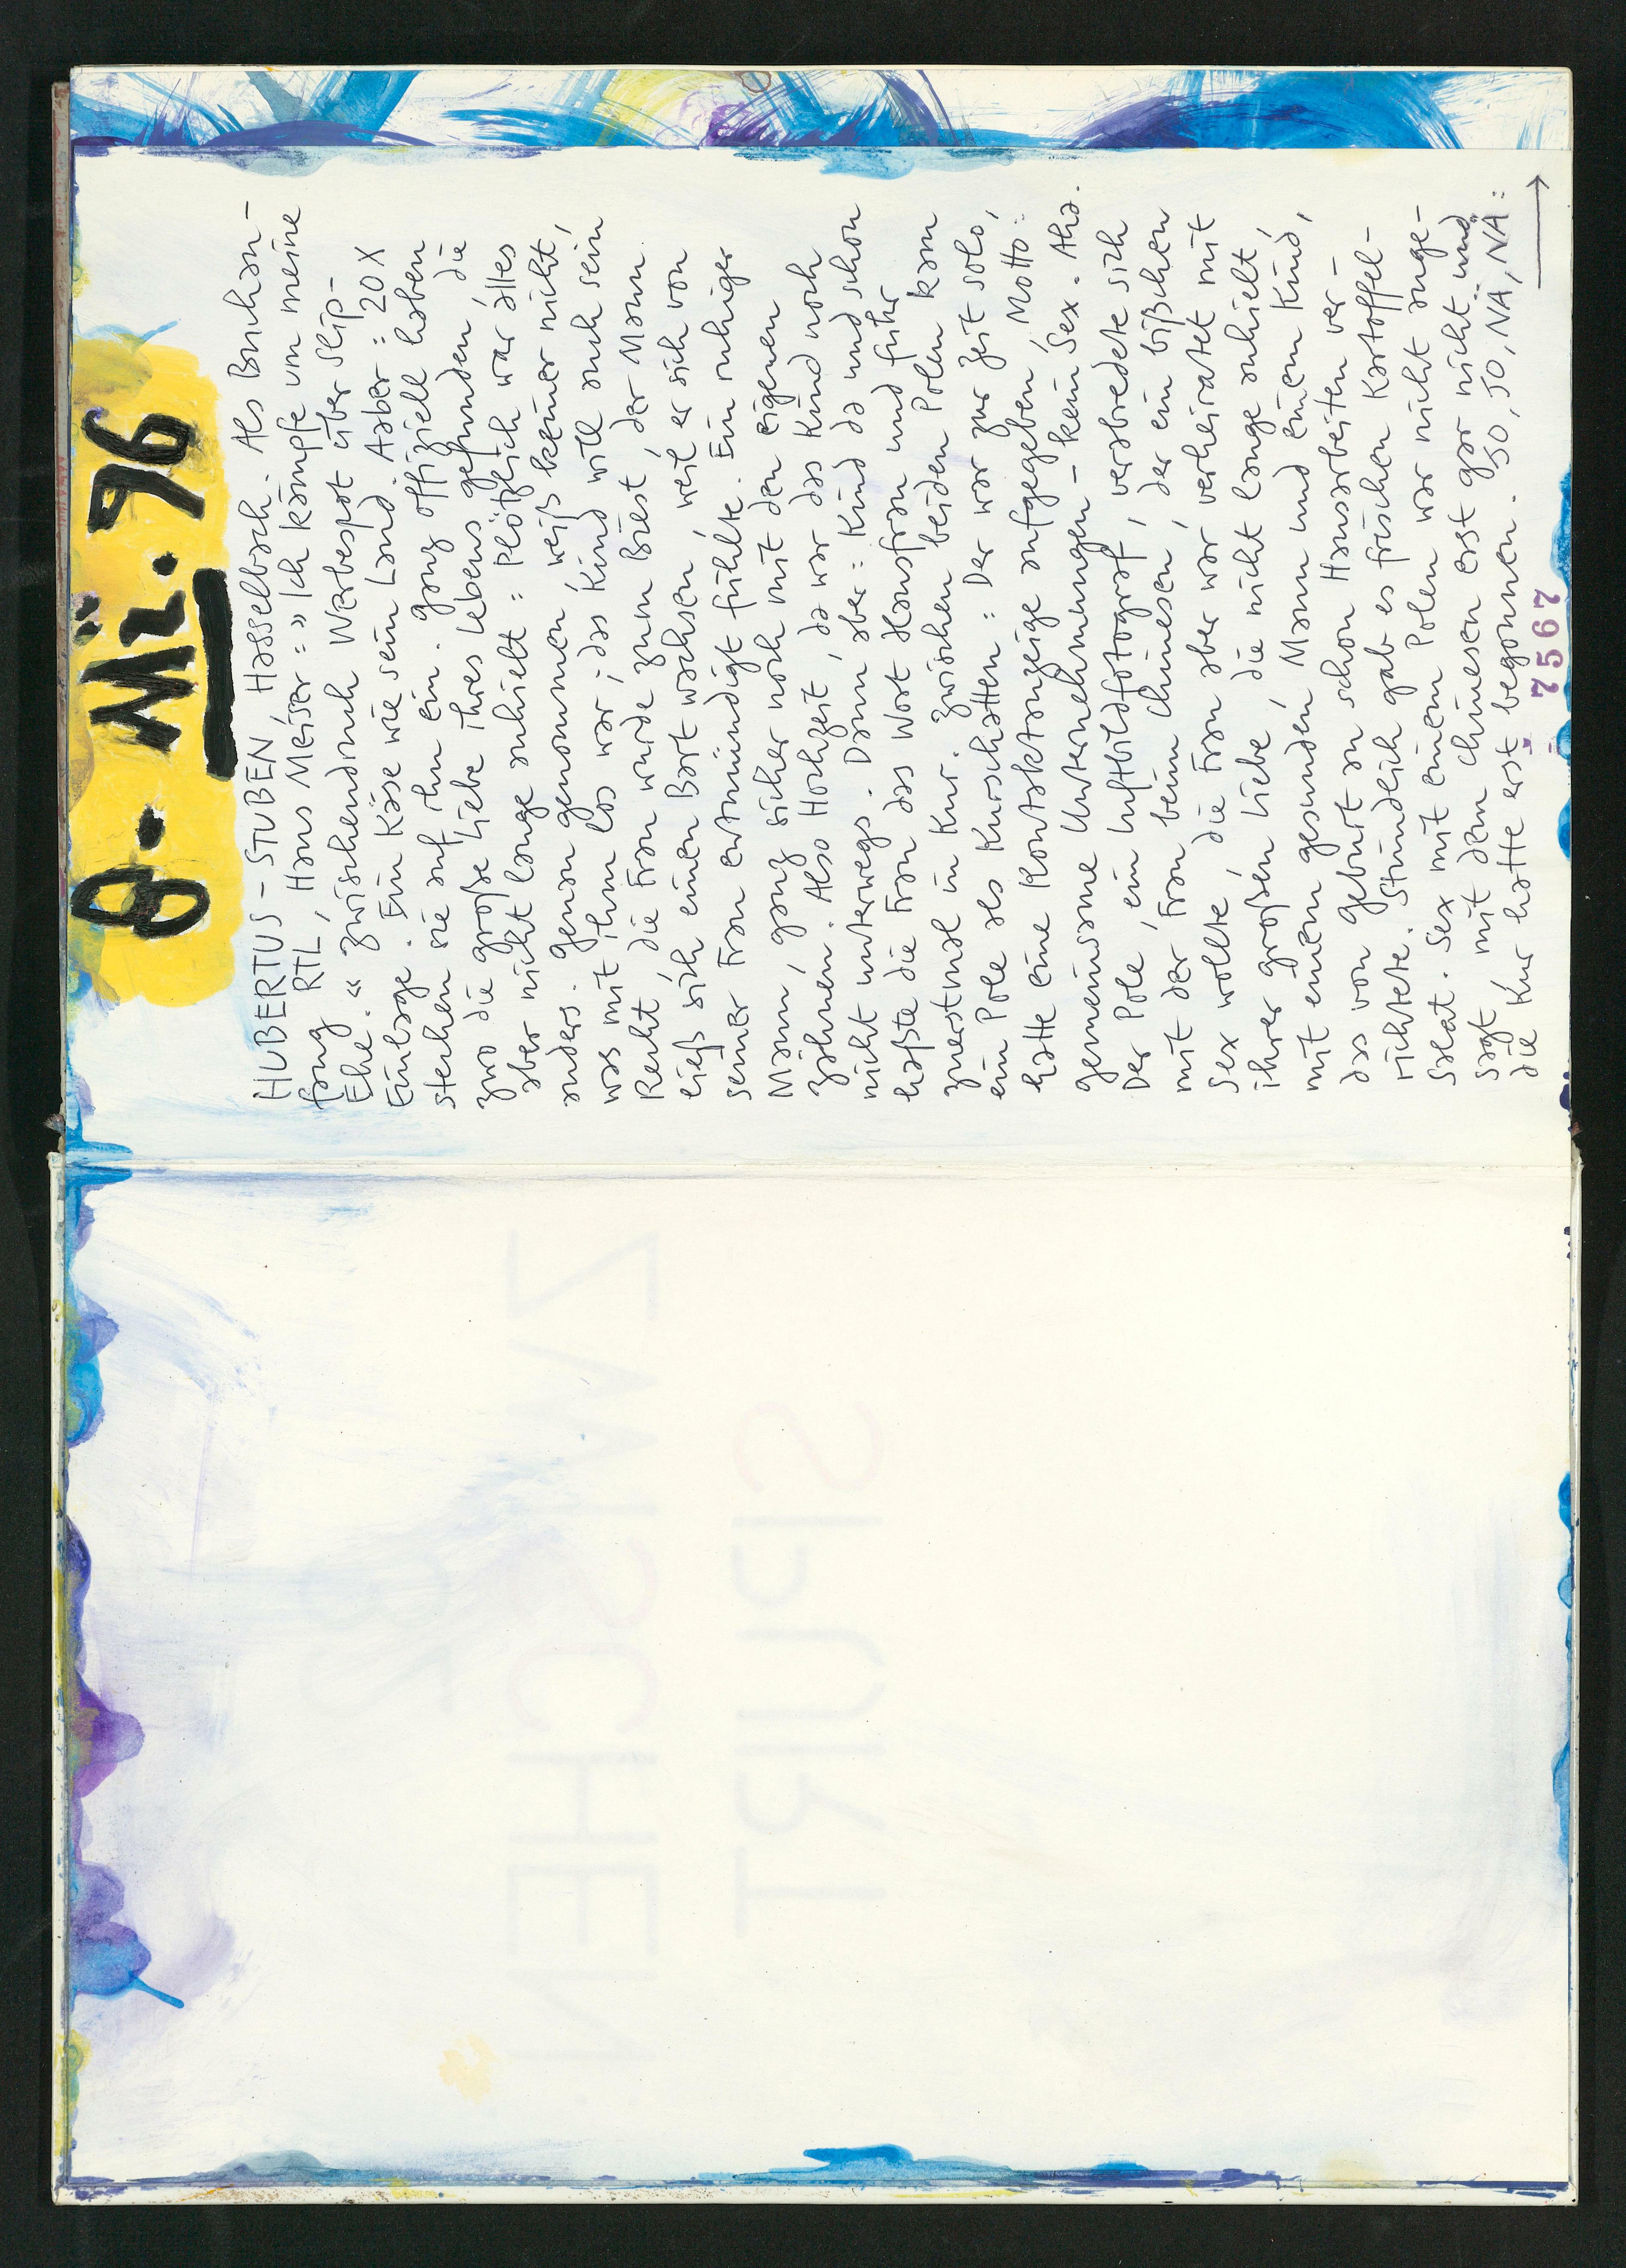 8. Mä. 96
HUBERTUS-STUBEN, Hasselbach. Als Bonhan-
fang RTL, Hans Meiser: »Ich kämpfe um meine
Ehe.« Zwischendruch Werbespot über Slip-
Einlage. Ein Käse wie sein Land. Aaber: 20 X
stechen sie auf ihn ein. Ganz offiziell haben
zwo die große Liebe ihres Lebens gefunden, die
aber nicht lange anhielt: Plötzlich war alles
anders. Genau genommen, weiß keiner nicht,
was mit ihm los war; das Kind will auch sein
Recht, die Frau wurde zum Biest, der Mann
ließ sich einen Bart wachsen, weil er sich von
seiner Frau entmündigt fühlte. Ein ruhiger
Mann, ganz sicher noch mit den eigenen
Zähnen. Also Hochzeit, da war das Kind noch
nicht unterwegs. Dann aber: Kind da und schon
haßte die Frau das Wort Hausfrau und fuhr
zuerstmal in Kur. Zwischen beiden Polen kam
ein Pole als Kurschatten: Der war zur Zeit solo,
hatte eine Kontaktanzeige aufgegeben, Motto:
gemeinsame Unternehmungen – kein Sex. Aha.
Der Pole, ein Luftbildfotograf, verabredete sich
mit der Frau beim Chinesen, der ein bißchen
Sex wollte, die Frau aber war verheiratet mit
ihrer großen Liebe, die nicht lange anhielt,
mit einem gesunden Mann und einem Kind,
das von Geburt an schon Hausarbeiten ver-
richtete. Stündlich gab es frischen Kartoffel-
salat. Sex mit einem Polen war nicht ange-
sagt, mit dem Chinesen erst gar nicht und
die Kur hatte erst begonnen. SO, SO, NA, NA:
7567
ZWISCHEN
SPURT